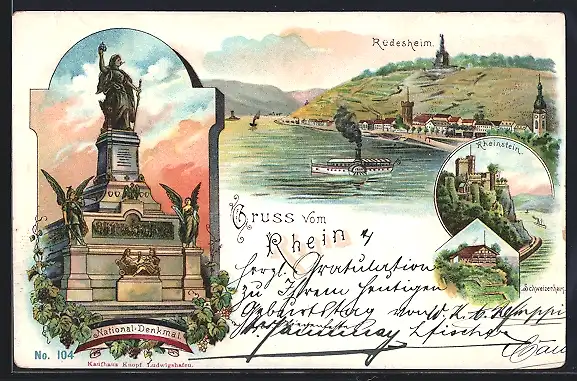 Rüdesheim.
Rheinstein.
Gruss vom
Rhein
herzl. Gratulation
zu Ihrem heutigen
Geburtstag von
Schweizerhaus
National-Denkmal
No. 104
Kaufhaus Knopf Ludwigshafen.